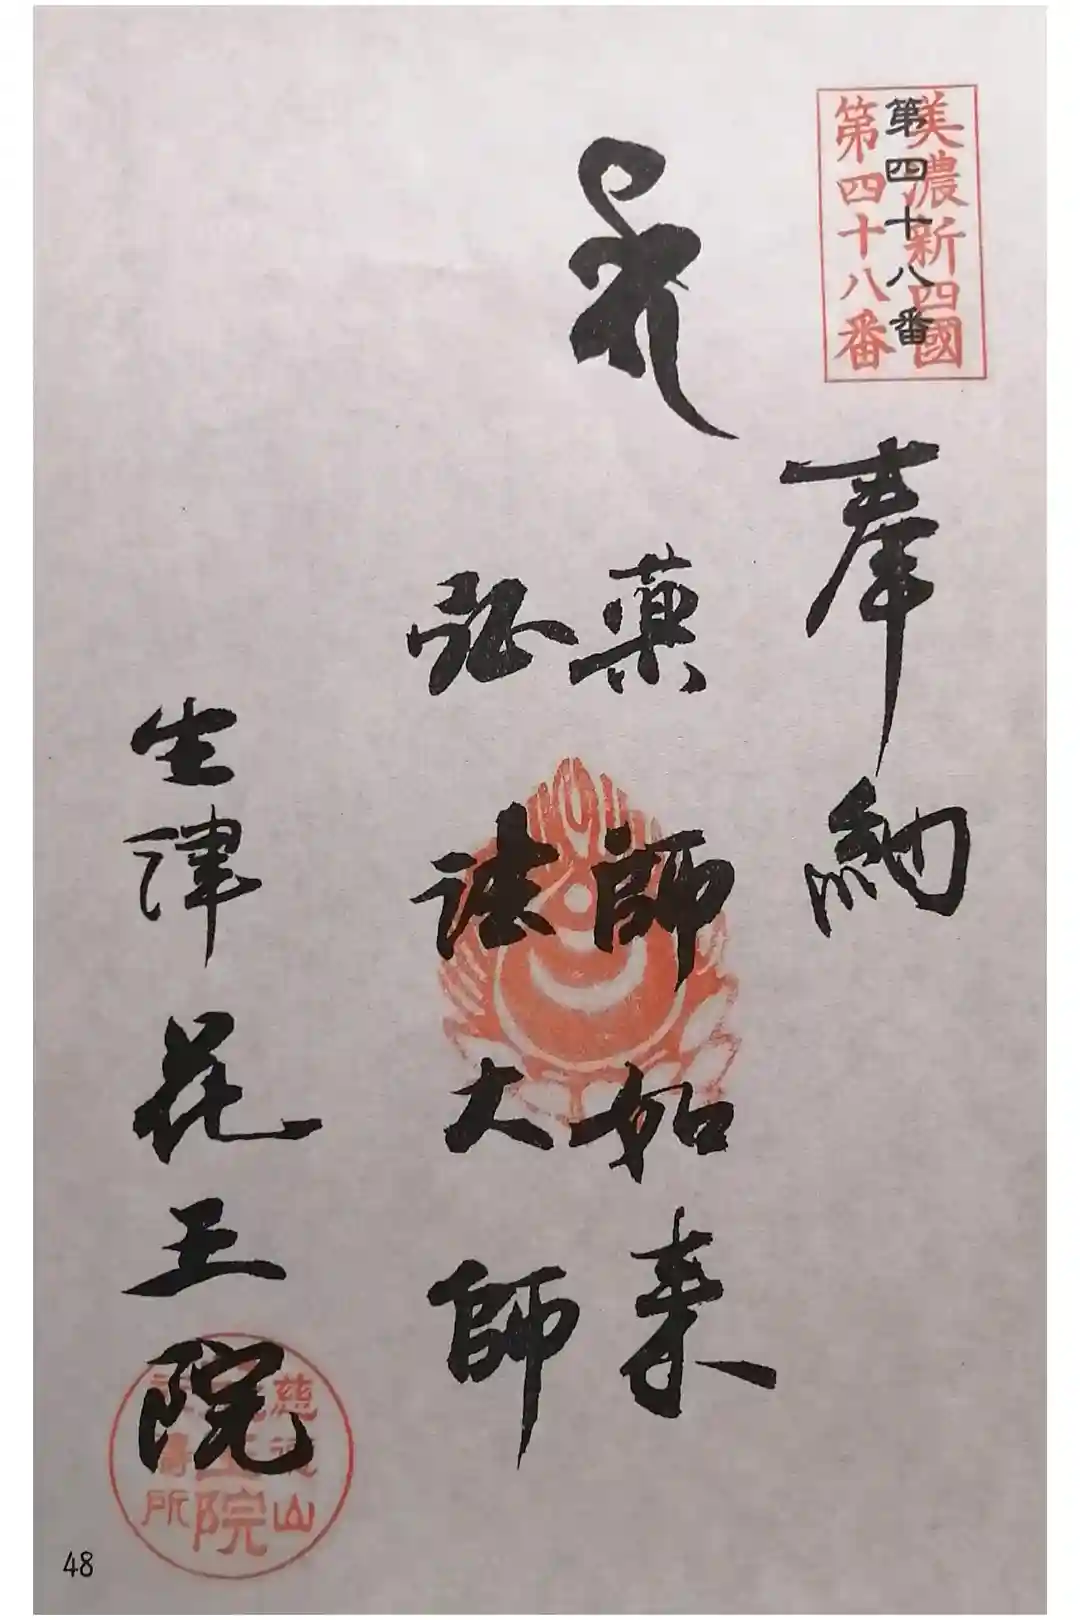 美濃新四國
第四十八番
第四十八番
奉納
薬師如来
弘法大師
生津花王院
慈山
王院
所
48